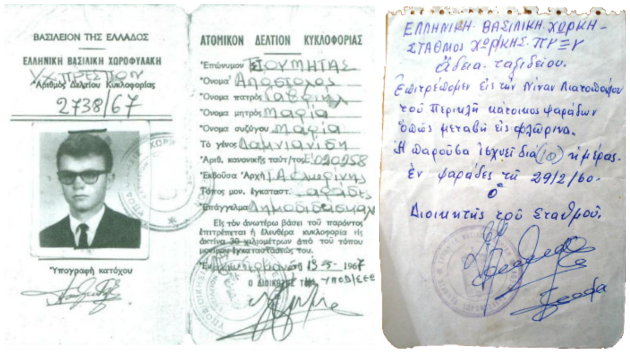 ΒΑΣΙΛΕΙΟΝ ΤΗΣ ΕΛΛΑΔΟΣ
ΕΛΛΗΝΙΚΗ ΒΑΣΙΛΙΚΗ ΧΩΡΟΦΥΛΑΚΗ
Υ.Χ. ΠΡΕΣΠΩΝ
Ἀριθμός Δελτίου Κυκλοφορίας
2738/67
Ὑπογραφή κατόχου
ΑΤΟΜΙΚΟΝ ΔΕΛΤΙΟΝ ΚΥΚΛΟΦΟΡΙΑΣ
Ἐπώνυμον
Ὄνομα Ἀπόστολος
Ὄνομα πατρός Γαβριήλ
Ὄνομα μητρός Μαρία
Ὄνομα συζύγου Μαρία
Τό γένος Δαμιανίδη
Ἀριθ. κανονικής ταύτ/τος
Ἐκδοῦσα Ἀρχή
Τόπος μον. ἐγκαταστ.
Ἐπάγγελμα Δημοδιδάσκαλ
Εἰς τόν ἀνωτέρω βάσει τοῦ παρόντος
ἐπιτρέπεται ἡ ἐλευθέρα κυκλοφορία εἰς
ἀκτῖνα 30 χιλιομέτρων ἀπό τοῦ τόπου
μονίμου ἐγκαταστάσεώς του.
1967
Ο ΔΙΟΙΚΗΤΗΣ
ΕΛΛΗΝΙΚΗ ΒΑΣΙΛΙΚΗ ΧΩΡ/ΚΗ
ΣΤΑΘΜΟΣ ΧΩΡ/ΚΗΣ ΠΥΞΥ
Ἄδεια ταξιδείου.
Ἐπιτρέπομεν εἰς τήν Νίναν Λιατοπούλου
τοῦ Περικλῆ κάτοικος Ψαράδων
ὅπως μεταβῇ εἰς Φλώρινα.
Ἡ παροῦσα ἰσχύει διά (10) ἡμέρας.
Ἐν Ψαράδες τῇ 29/2/60
Ὁ
Διοικητής τοῦ Σταθμοῦ.